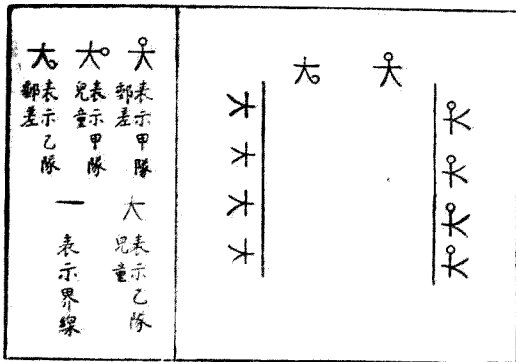 表示甲隊郵差
表示甲隊兒童
表示乙隊郵差
表示乙隊兒童
表示界線